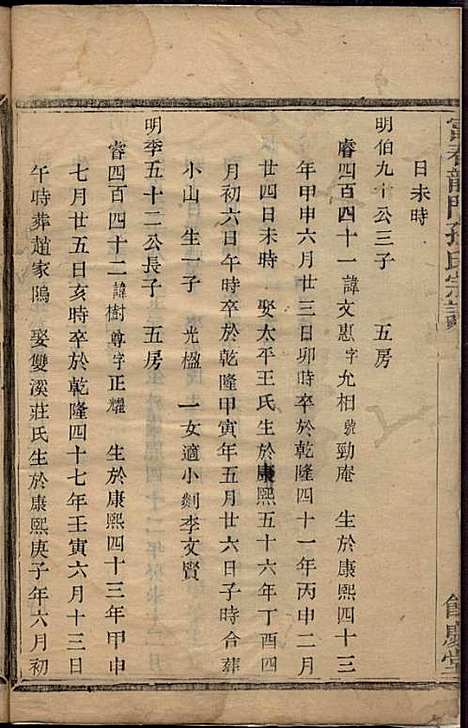 富春龍門孫氏宗譜
餘慶堂
日未時
明伯九十公三子　五房
睿四百四十一諱文惠字允相號勁庵　生於康熙四十三
年甲申六月廿三日卯時卒於乾隆四十一年丙申二月
廿四日未時　娶太平王氏生於康熙五十六年丁酉四
月初六日午時卒於乾隆甲寅年五月廿六日子時合葬
小山　生一子　光楹　一女適小剡李文賢
明季五十二公長子　五房
睿四百四十二諱樹尊字正燿　生於康熙四十三年甲申
七月廿五日亥時卒於乾隆四十七年壬寅六月十三日
午時葬趙家塢　娶雙溪莊氏生於康熙庚子年六月初